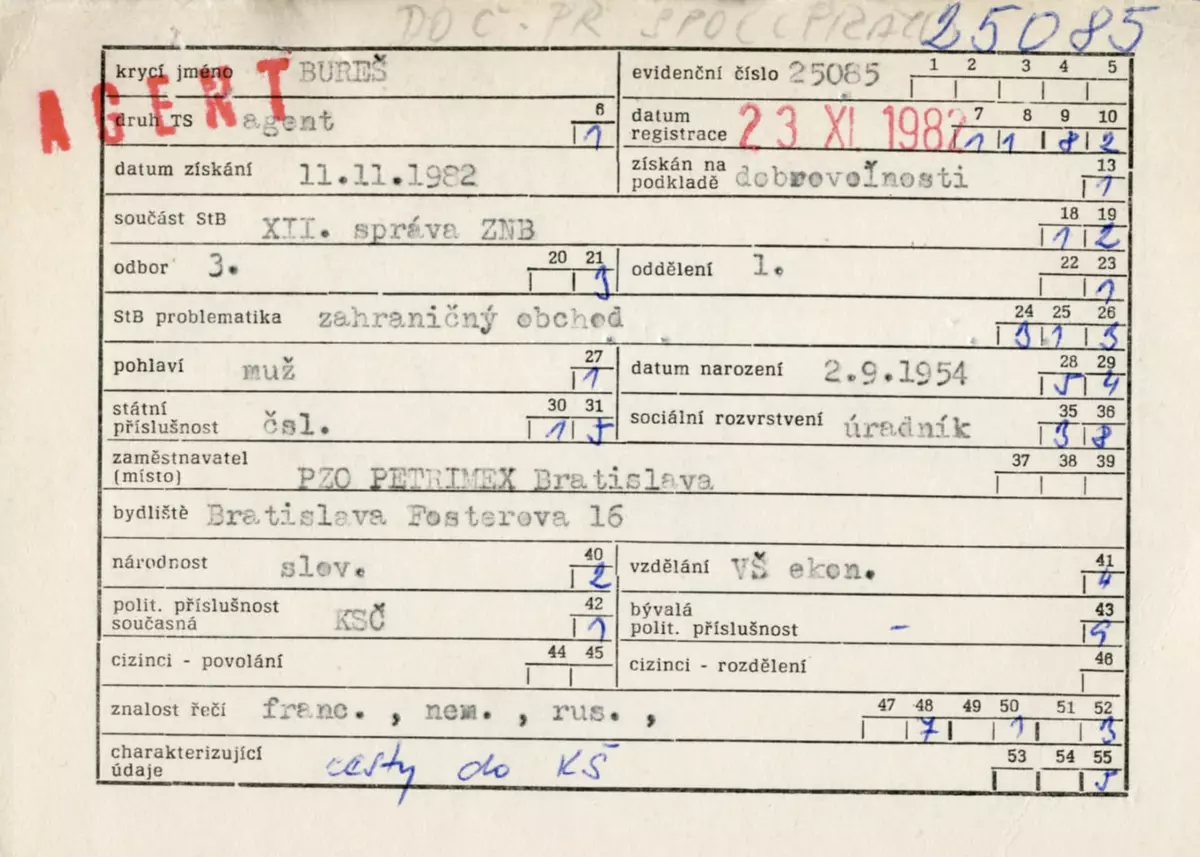 DOČ. PR SPOL
25085
krycí jméno BUREŠ evidenční číslo 25085 1 2 3 4 5
AGENT
druh TS agent 6 1 datum registrace 23 XI 1982 7 8 9 10 1 1 8 2
datum získání 11.11.1982 získán na podkladě dobrovoľnosti 13 1
součást StB XII. správa ZNB 18 19 1 2
odbor 3. 20 21 3 oddělení 1. 22 23 1
StB problematika zahraničný obchod 24 25 26 3 1 3
pohlaví muž 27 1 datum narození 2.9.1954 28 29 5 4
státní příslušnost čsl. 30 31 1 5 sociální rozvrstvení úradník 35 36 3 8
zaměstnavatel (místo) PZO PETRIMEX Bratislava 37 38 39
bydliště Bratislava Fosterova 16
národnost slov. 40 2 vzdělání VŠ ekon. 41 4
polit. příslušnost současná KSČ 42 1 bývalá polit. příslušnost - 43 9
cizinci - povolání 44 45 cizinci - rozdělení 46
znalost řečí franc. , nem. , rus. , 47 48 49 50 51 52 7 1 3
charakterizující údaje cesty do KŠ 53 54 55 5